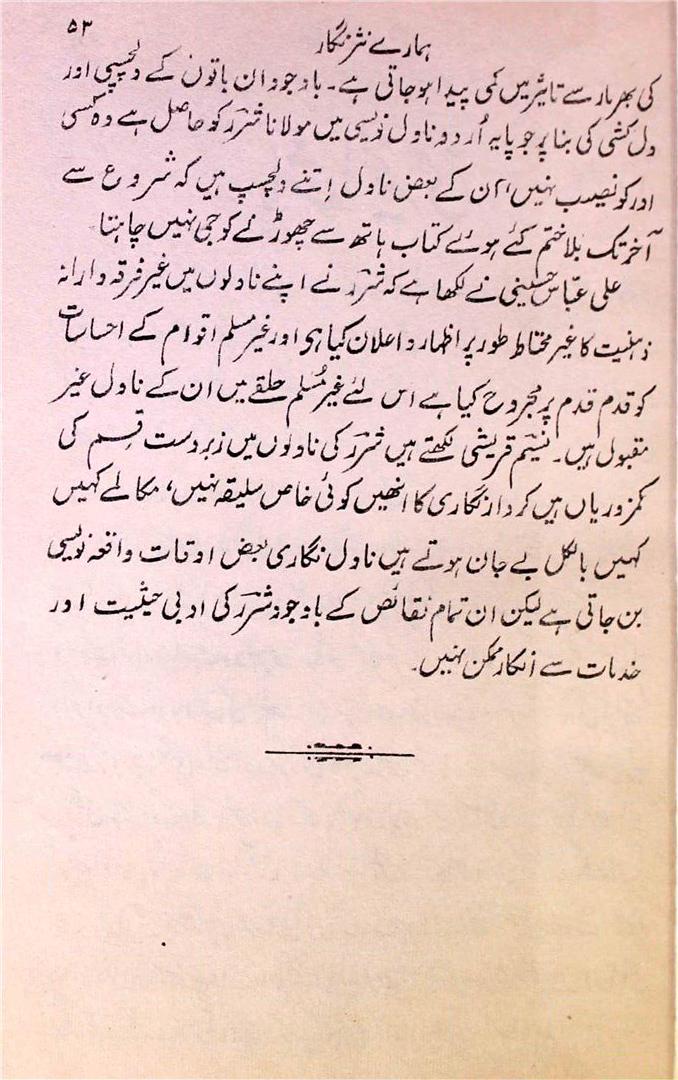 ہمارے نثر نگار ۵۳
کی بھرمار سے تاثیر میں کمی پیدا ہو جاتی ہے۔ باوجود ان باتوں کے دلچسپی اور
دل کشی کی بنا پر جو پایہ اُردو ناول نویسی میں مولانا شررؔ کو حاصل ہے وہ کسی
اور کو نصیب نہیں، ان کے بعض ناول اِتنے دلچسپ ہیں کہ شروع سے
آخر تک بلا ختم کئے ہوئے کتاب ہاتھ سے چھوڑنے کو جی نہیں چاہتا
علی عبّاس حسینی نے لکھا ہے کہ شررؔ نے اپنے ناولوں میں غیر فرقہ وارانہ
ذہنیت کا غیر محتاط طور پر اظہار و اعلان کیا ہی اور غیر مسلم اقوام کے احساسات
کو قدم قدم پر مجروح کیا ہے اس لئے غیر مُسلم حلقے میں ان کے ناول غیر
مقبول ہیں۔ نسیم قریشی لکھتے ہیں شررؔ کی ناولوں میں زبردست قِسم کی
کمزوریاں ہیں کردار نگاری کا انھیں کوئی خاص سلیقہ نہیں، مکالمے کہیں
کہیں بالکل بے جان ہوتے ہیں ناول نگاری بعض اوقات واقعہ نویسی
بن جاتی ہے لیکن ان تمام نقائص کے باوجود شررؔ کی ادبی حیثیت اور
خدمات سے انکار ممکن نہیں۔